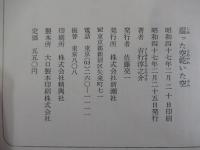 湿った空乾いた空
昭和四十七年二月二十日印刷
昭和四十七年二月二十五日発行
著者 吉行淳之介
発行者 佐藤亮一
発行所 株式会社新潮社
東京都新宿区矢来町七一
電話 東京(03)二六〇一一一一
振替 東京八〇八
印刷所 株式会社精興社
製本所 大口製本印刷株式会社
定価 五五〇円